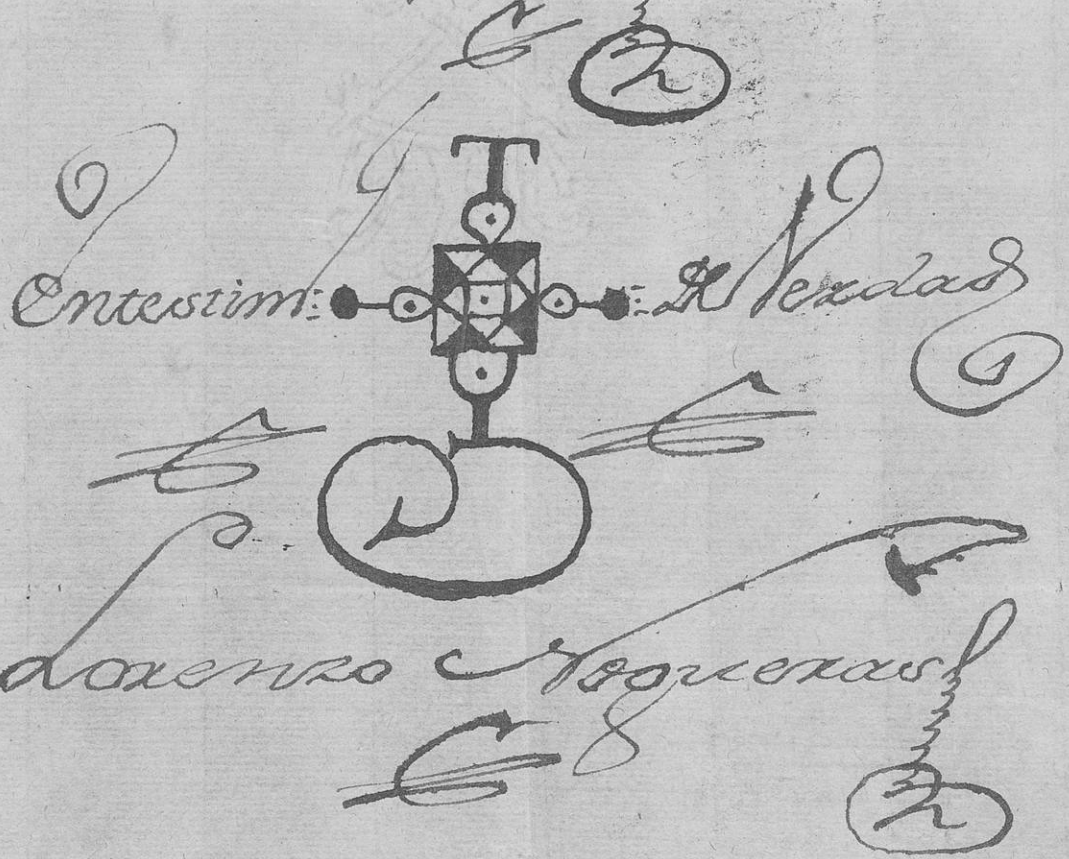 En testim: de Verdad
Lorenzo Nogueras